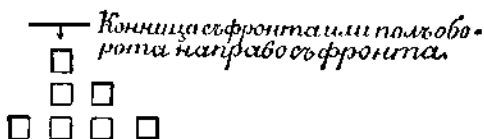 Конница съ фронта или полъ обо-
рота направо съ фронта.